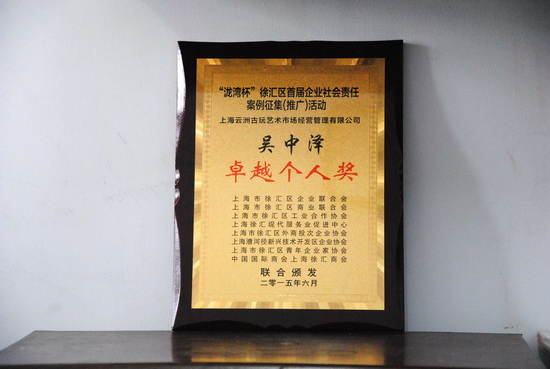 “泷湾杯”徐汇区首届企业社会责任
案例征集(推广)活动
上海云洲古玩艺术市场经营管理有限公司
吴中泽
卓越个人奖
上海市徐汇区企业联合会
上海市徐汇区商业联合会
上海市徐汇区工业合作协会
上海徐汇现代服务业促进中心
上海市徐汇区外商投次企业协会
上海漕河径新兴技术开发区企业协会
上海市徐汇区青年企业家协会
中国国际商会上海徐汇商会
联合颁发
二零一五年六月